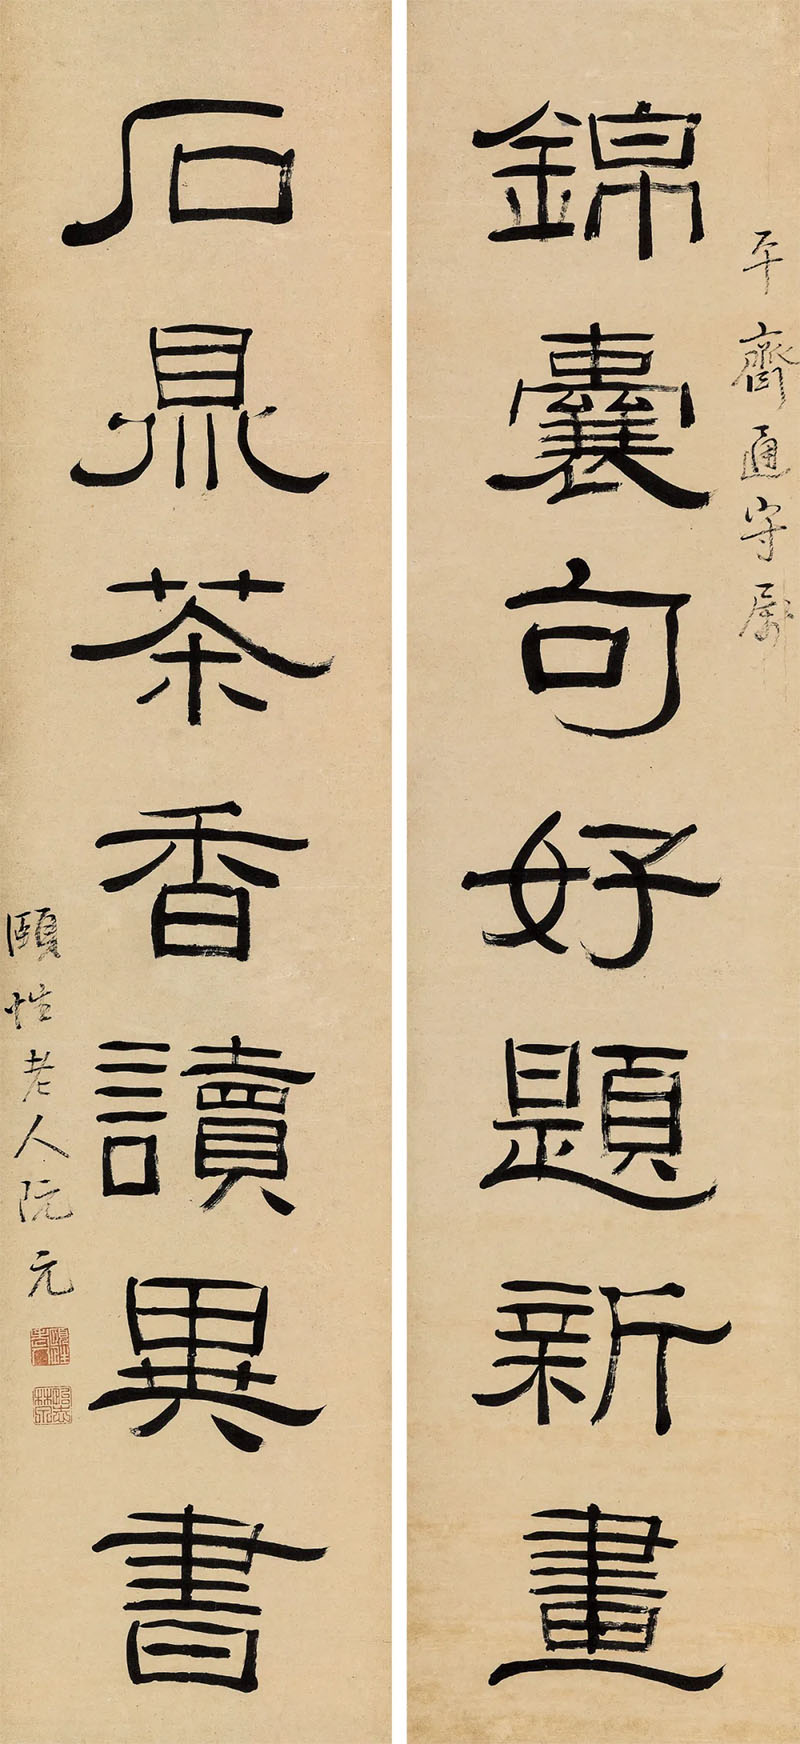 平齋通守屬
錦囊句好題新畫
石鼎茶香讀異書
頤性老人阮元